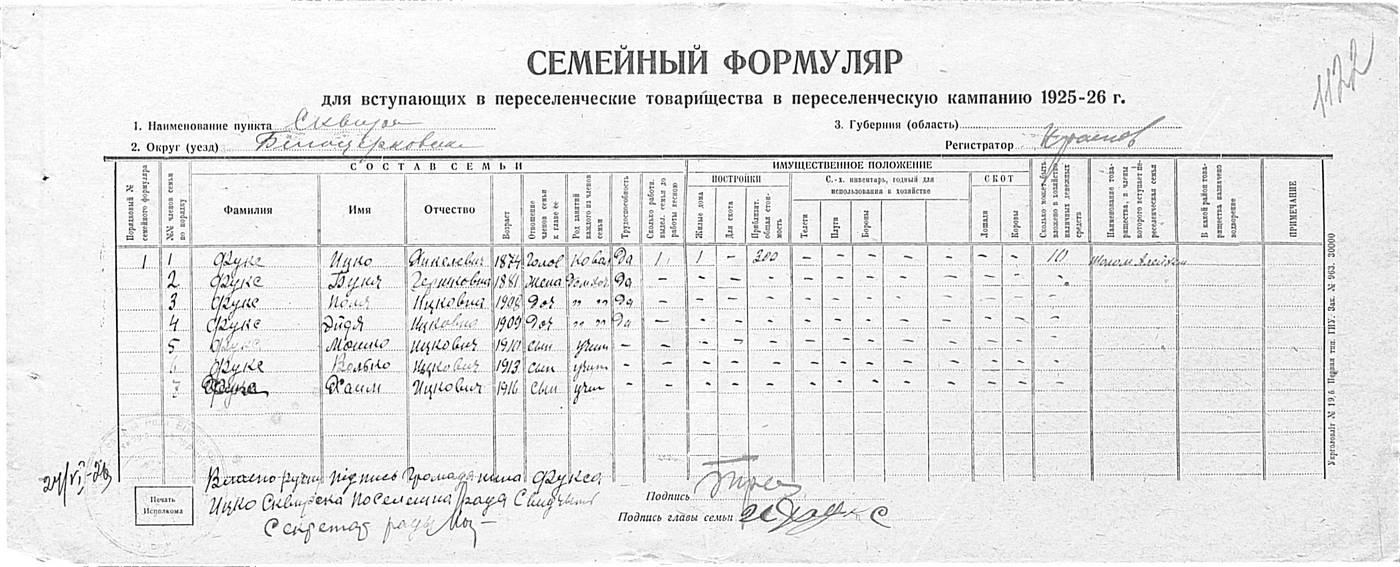 1122
СЕМЕЙНЫЙ ФОРМУЛЯР
для вступающих в переселенческие товарищества в переселенческую кампанию 1925-26 г.
1. Наименование пункта Сквира
3. Губерния (область)
2. Округ (уезд) Білоцерковск
Регистратор
Порядковый № семейного формуляра
СОСТАВ СЕМЬИ
№№ членов семьи по порядку
Фамилия
Имя
Отчество
Возраст
Отношение членов семьи к главе ее
Род занятий каждого из членов семьи
Трудоспособность
Сколько работн. выдел. семья до работы весною
ИМУЩЕСТВЕННОЕ ПОЛОЖЕНИЕ
ПОСТРОЙКИ
Жилые дома
Для скота
Приблизит. общая стоимость
С.-х. инвентарь, годный для использования в хозяйстве
Телеги
Плуги
Бороны
СКОТ
Лошади
Коровы
Сколько может быть вложено в хозяйство наличных денежных средств
Наименование товарищества, в члены которого вступает переселенческая семья
В какой район товарищества назначено водворение
ПРИМЕЧАНИЕ
1 1 Фукс Ицко Янкелевич 1874 Голов Ковал Да 1 1 – 300 – – – – – – 10 Шолом Алейхем
2 Фукс Буня 1881 жена Домхоз Да – – – – – – – – – –
3 Фукс Поля Ицковна 1908 Доч " " Да – – – – – – – – – – –
4 Фукс Эйдя Ицковна 1909 Доч " " Да – – – – – – – – – – –
5 Фукс Мошко Ицкович 1910 сын учит – – – – – – – – – – – –
6 Фукс Волько Ицкович 1913 сын учит – – – – – – – – – – – –
7 Фукс Хаим Ицкович 1916 сын учит – – – – – – – – – – – –
Власноручний підпись Громадянина Фукса
Ицко Сквирска Поселешна Рада
Секретар ради
Печать Исполкома
Подпись
Подпись главы семьи И Фукс
Укрголовліт № 19,6. Первая тип. ГИУ. Зак. № 963. 30000